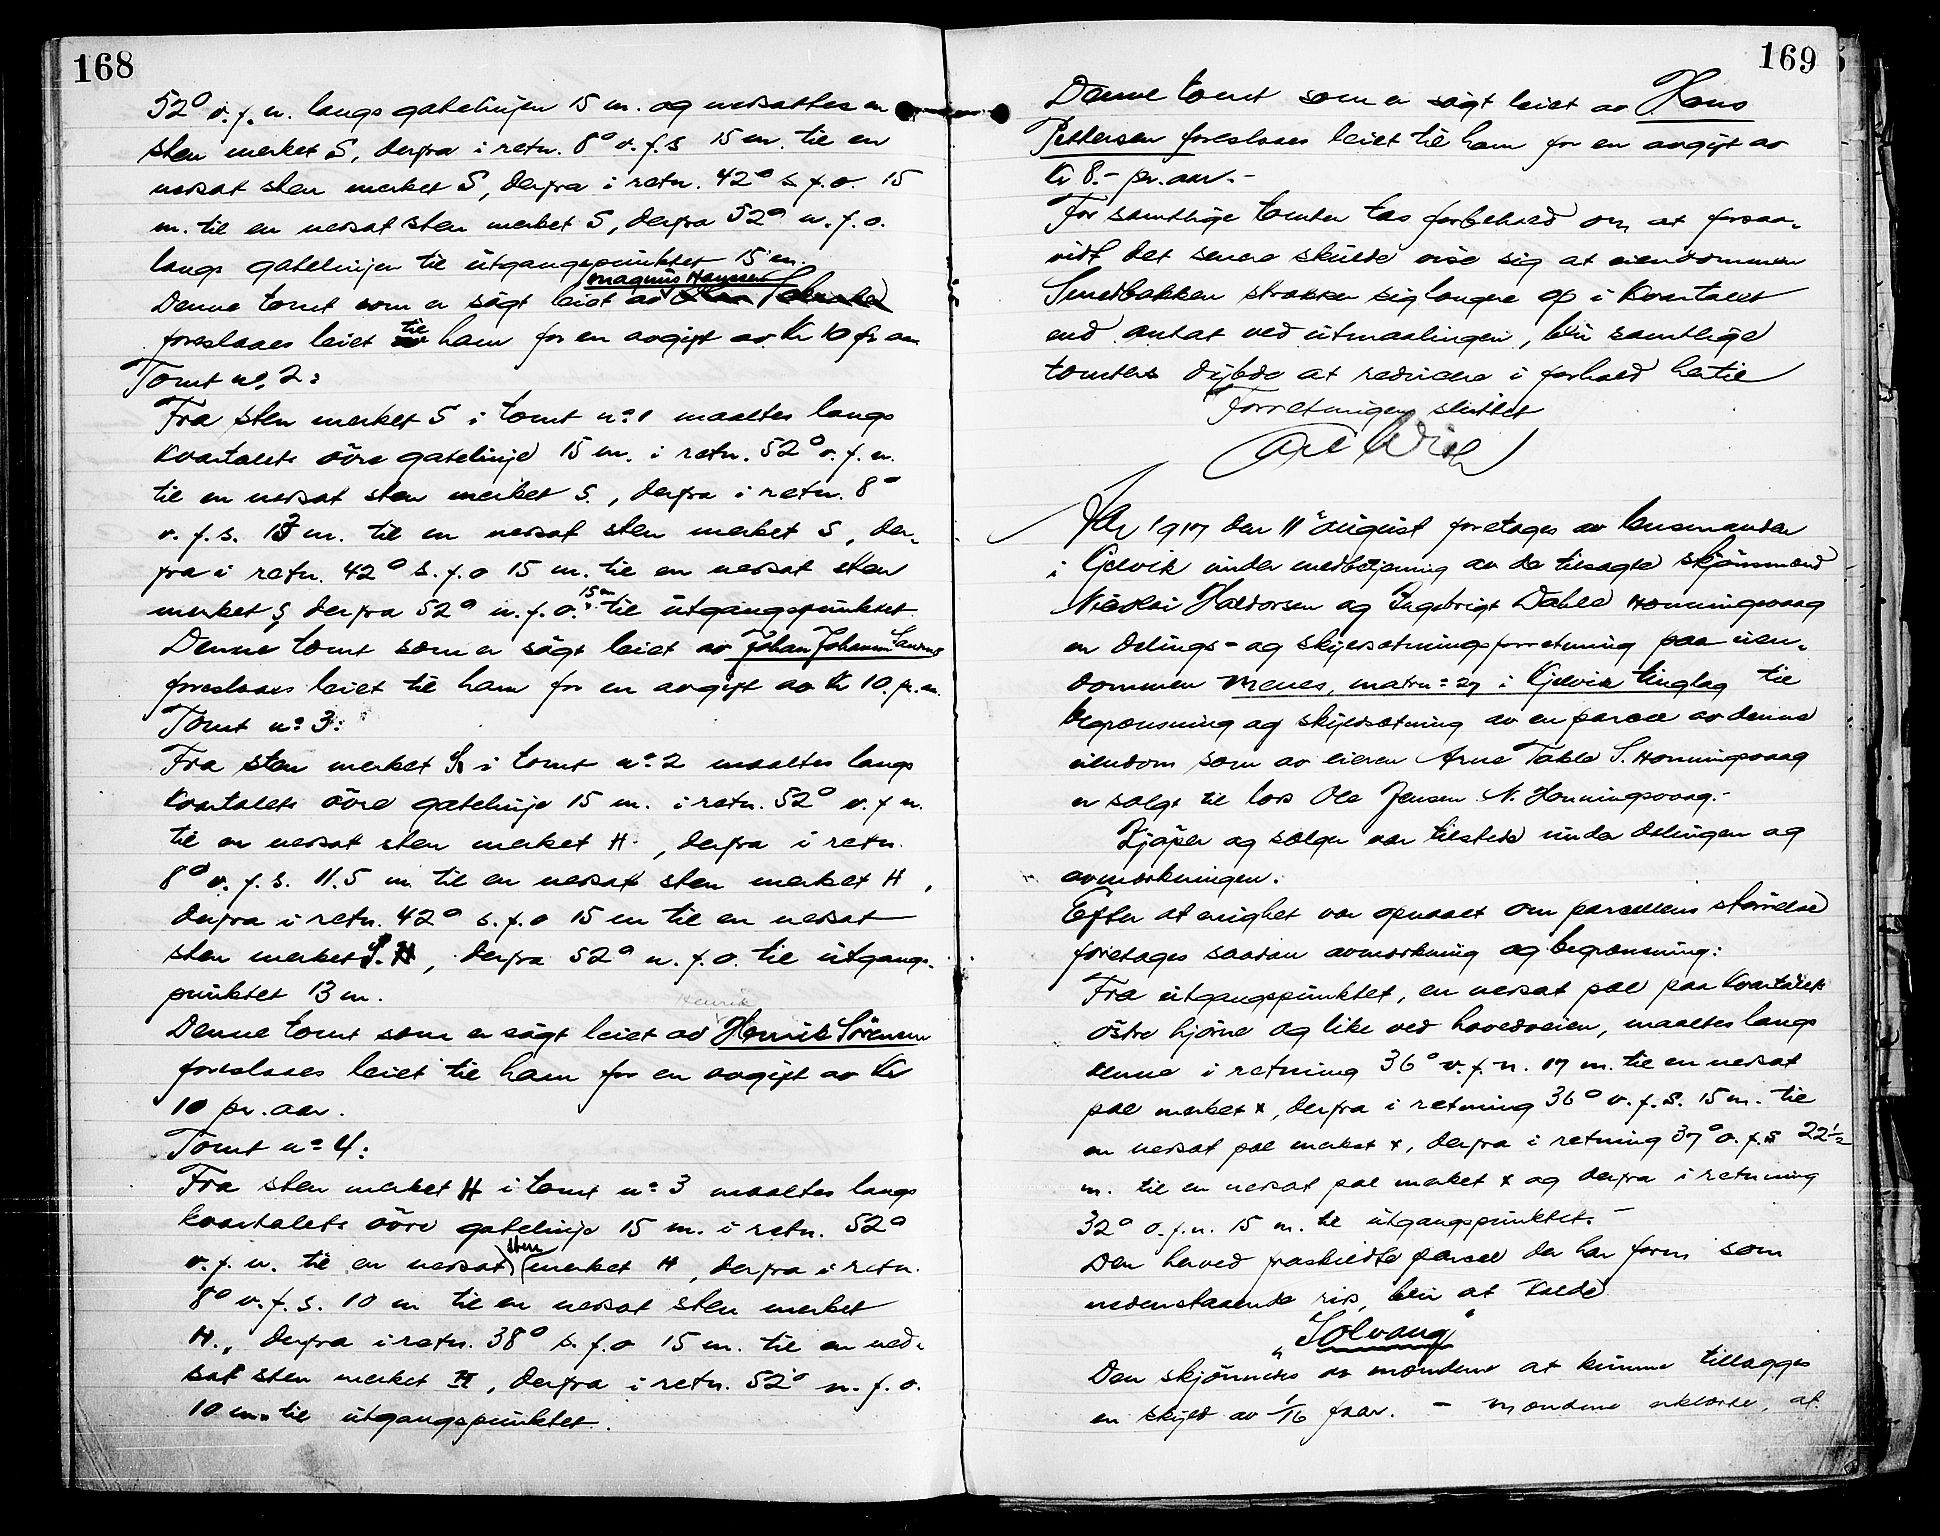 168
52° v. f. n. langs gatelinjen 15 m. og nedsattes en
sten merket S, derfra i retn. 8° v. f. s 15 m. til en
nedsat sten merket S, derfra i retn. 42° s. f. o. 15
m. til en nedsat sten merket S, derfra 52° n. f. o.
langs gatelinjen til utgangspunktet 15 m.
Magnus Hansen
Denne tomt som er søgt leiet av
foreslaaes leiet til ham for en avgift av Kr 10 pr aar
Tomt no. 2:
Fra sten merket S i tomt no 1 maaltes langs
kvartalets övre gatelinje 15 m. i retn. 52° v. f. n.
til en nedsat sten merket S., derfra i retn. 8°
v. f. s. 13 m. til en nedsat sten merket S, der-
fra i retn. 42° s. f. o 15 m. til en nedsat sten
merket S derfra 52° n. f. o. 15 m til utgangspunktet
Denne tomt som er søgt leiet av Johan Johannesen
foreslaaes leiet til ham for en avgift av Kr 10. pr. a.
Tomt no 3:
Fra sten merket S i tomt no 2 maaltes langs
kvartalets övre gatelinje 15 m. i retn. 52° v. f n.
til en nedsat sten merket H., derfra i retn.
8° v. f. s. 11.5 m til en nedsat sten merket H,
derfra i retn. 42° s. f. o 15 m til en nedsat
sten merket S. H, derfra 52° n. f. o. til utgangs-
punktet 13 m.
Henrik
Denne tomt som er søgt leiet av Henrik Sørensen
foreslaaes leiet til ham for en avgift av Kr
10 pr. aar.
Tomt no 4:
Fra sten merket H i tomt no 3 maaltes langs
kvartalets övre gatelinje 15 m. i retn. 52°
v. f. n. til en nedsat sten merket H, derfra i retn.
8° v. f. s. 10 m til en nedsat sten merket
H., derfra i retn. 38° s. f. o 15 m. til en ned-
sat sten merket H, derfra i retn. 52° n. f. o.
10 m. til utgangspunktet.
169
Denne tomt som er søgt leiet av Hans
Pettersen foreslaaes leiet til ham for en avgift av
Kr 8.- pr. aar.-
For samtlige tomter tas forbehold om at forsaa-
vidt det senere skulde vise sig at eiendommen
Smedbakken strækker sig længere op i kvartalet
end antat ved utmaalingen, blir samtlige
tomters dybde at reducere i forhold hertil
Forretningen sluttet
Carl Wiik
Aar 1917 den 11 august foretages av lensmanden
i Kjelvik under medbetjening av de tilsagte skjønsmænd
Nikolai Haldorsen og Ingebrigt Dahle Honningsvaag
en delings- og skyldsætningsforretning paa eien-
dommen Menes, matrn: 27 i Kjelvik tinglag til
begrænsning og skyldsætning av en parcel av denne
eiendom som av eieren Arne Takle S. Honningsvaag
er solgt til los Ole Jensen N. Honningsvaag.-
Kjøper og sælger var tilstede under delingen og
avmerkningen.
Efter at enighet var opnaaet om parcellens størrelse
foretages saadan avmerkning og begrænsning:
Fra utgangspunktet, en nedsat pæl paa kvartalets
østre hjørne og like ved hovedveien, maaltes langs
denne i retning 36° v. f. n. 17 m. til en nedsat
pæl merket x, derfra i retning 36° v. f. S. 15 m. til
en nedsat pæl merket x, derfra i retning 37° o. f. s 22½
m. til en nedsat pæl merket x og derfra i retning
32° o. f. n. 15 m. til utgangspunktet.-
Den herved fraskilte parcel der har form som
nedenstaaende rids, blir at kalde
"Solvang"
Den skjønnedes av mændene at kunne tillægges
en skyld av 1/16 faar. - Mændene erklærte, at